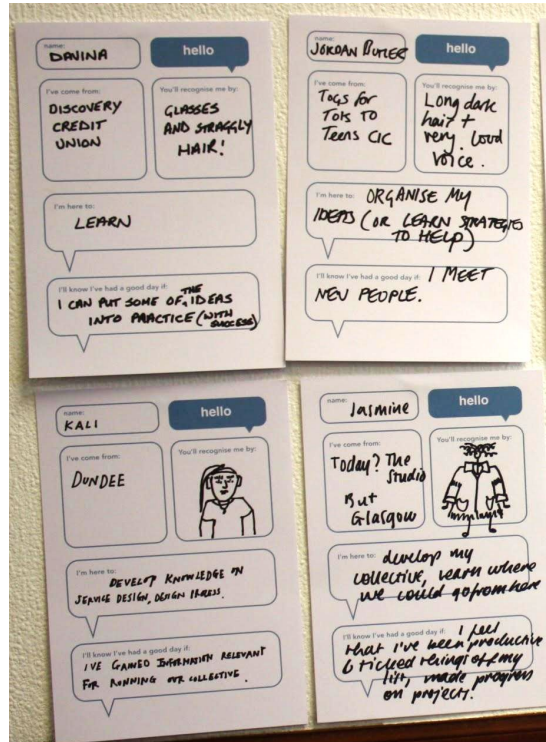 name:
DANINA
hello
I've come from:
DISCOVERY
CREDIT
UNION
You'll recognise me by:
GLASSES
AND STRAGGLY
HAIR!
I'm here to:
LEARN
I'll know I've had a good day if:
I CAN PUT SOME OF THE IDEAS
INTO PRACTICE (WITH
SUCCESS)
name:
JORDAN BUTLER
hello
I've come from:
TOGS for
Tots TO
Teens CIC
You'll recognise me by:
Long dark
hair +
very loud
voice.
I'm here to: ORGANISE MY
IDEAS (OR LEARN STRATEGIES
TO HELP)
I'll know I've had a good day if: I MEET
NEW PEOPLE.
name:
KALI
hello
I've come from:
DUNDEE
You'll recognise me by:
I'm here to:
DEVELOP KNOWLEDGE ON
SERVICE DESIGN, DESIGN
I'll know I've had a good day if:
I'VE GAINED INFORMATION RELEVANT
FOR RUNNING OUR COLLECTIVE.
name:
Jasmine
hello
I've come from:
Today? The
Studio
But
Glasgow
You'll recognise me by:
I'm here to: develop my
collective, learn where
we could go from here
I'll know I've had a good day if: I feel
that I've been productive
& ticked things off my
list, made progress
on projects!